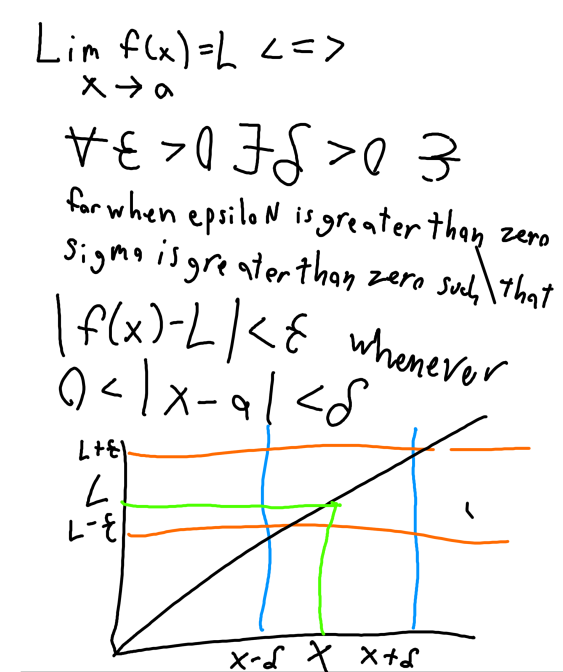 Lim f(x)=L <=>
x→a
∀ε>0 ∃δ>0 ∋
for when epsiloN is greater than zero
sigma is greater than zero such that
|f(x)-L|<ε whenever
0<|x-a|<δ
L+ε
L
L-ε
x-δ x x+δ